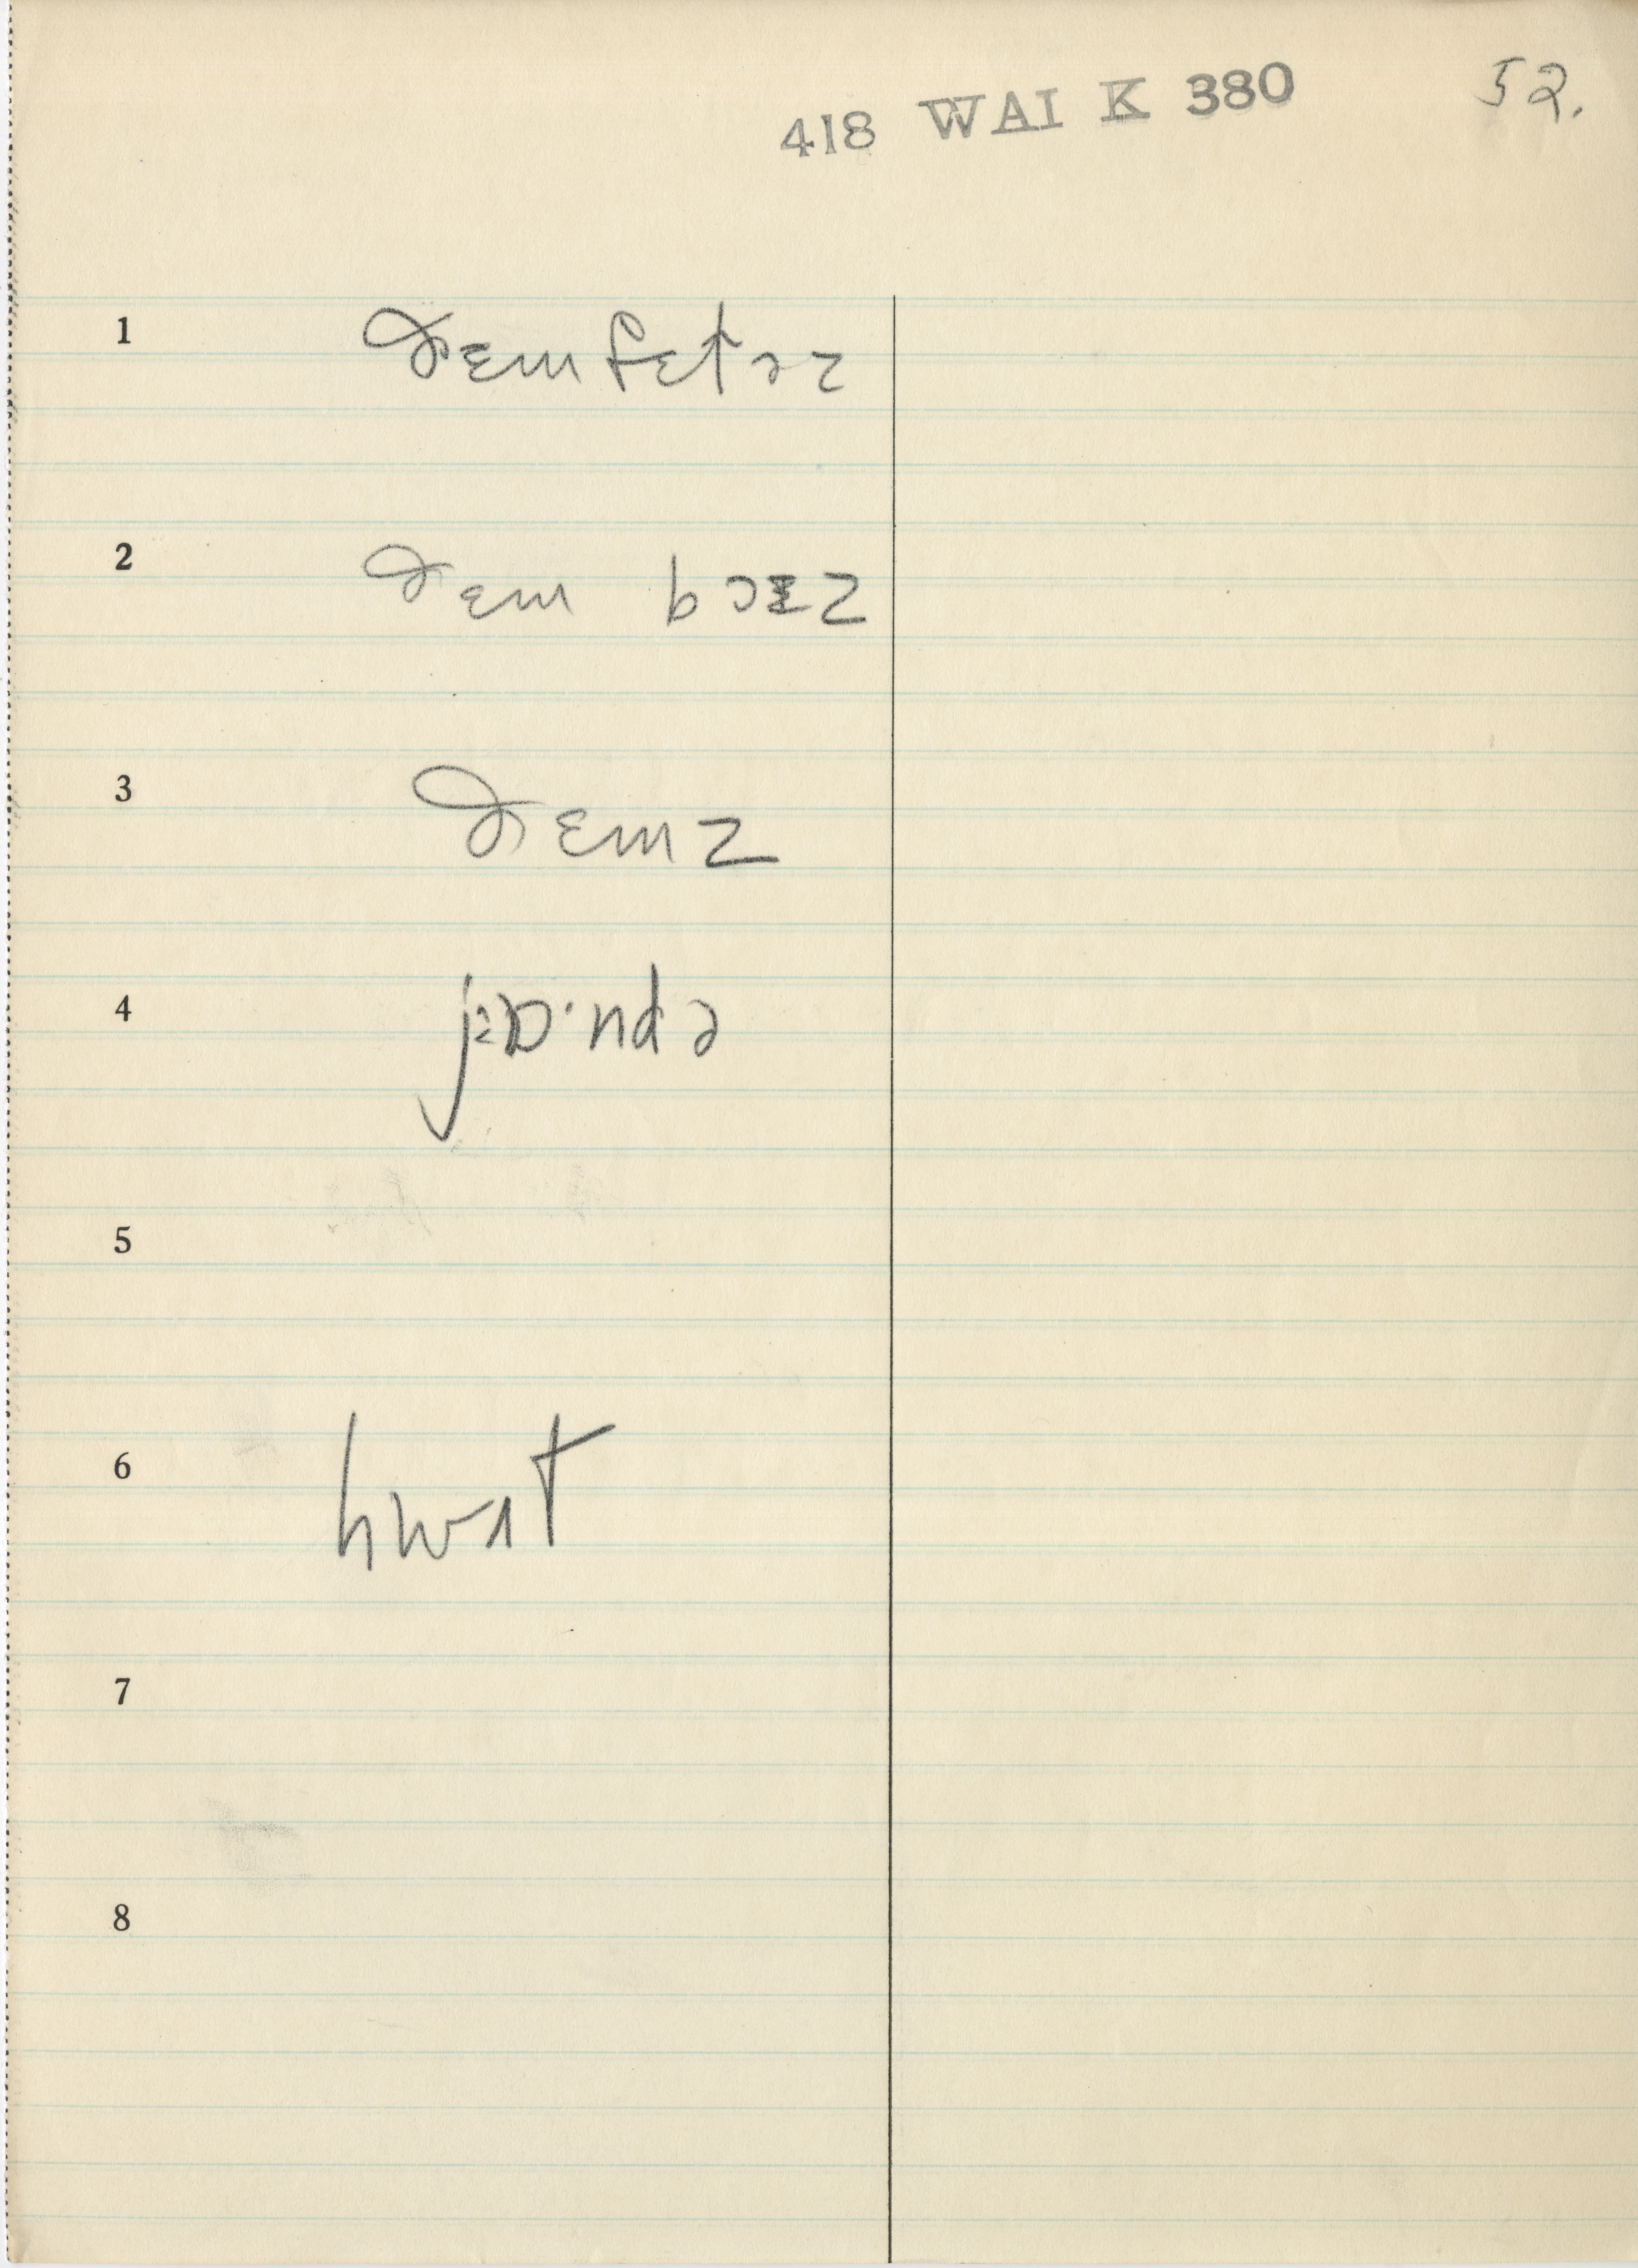 418 WAI K 380 52.
1 ðɛm fɛtəz
2 ðɛm bɔɪz
3 ðɛmz
4
5
6 hwɑt
7
8